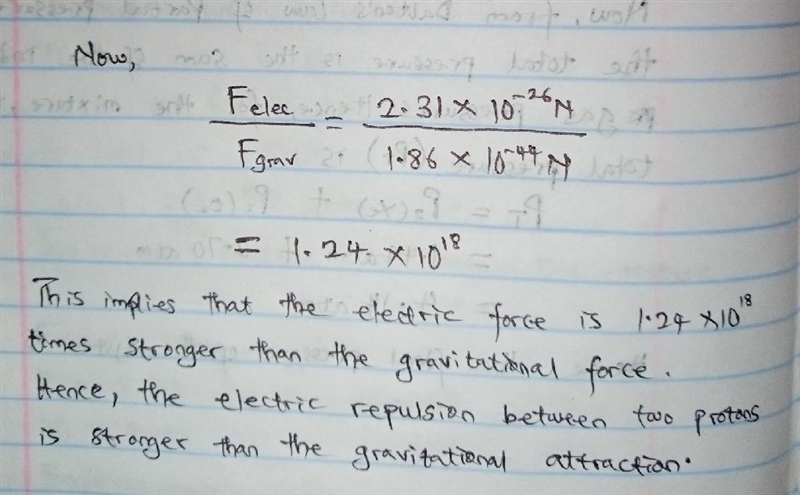 Now,
Felec / Fgrav = 2.31 × 10^-26 N / 1.86 × 10^-44 N
= 1.24 × 10^18
This implies that the electric force is 1.24 × 10^18
times stronger than the gravitational force.
Hence, the electric repulsion between two protons
is stronger than the gravitational attraction.